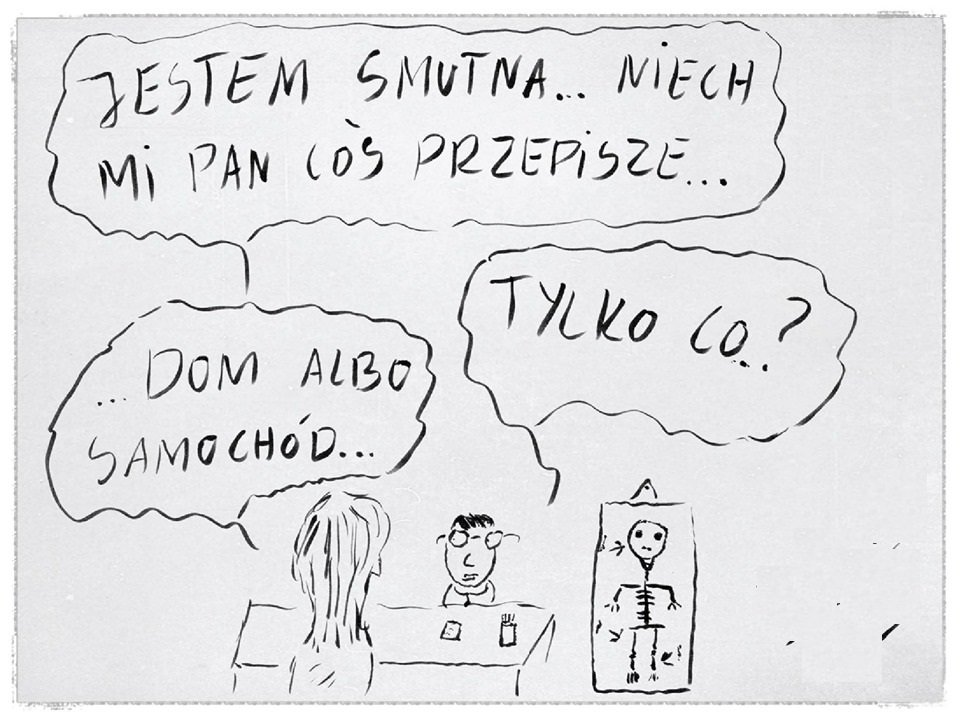 JESTEM SMUTNA... NIECH
MI PAN CÒŚ PRZEPISZE...
TYLKO CO..?
...DOM ALBO
SAMOCHÓD...